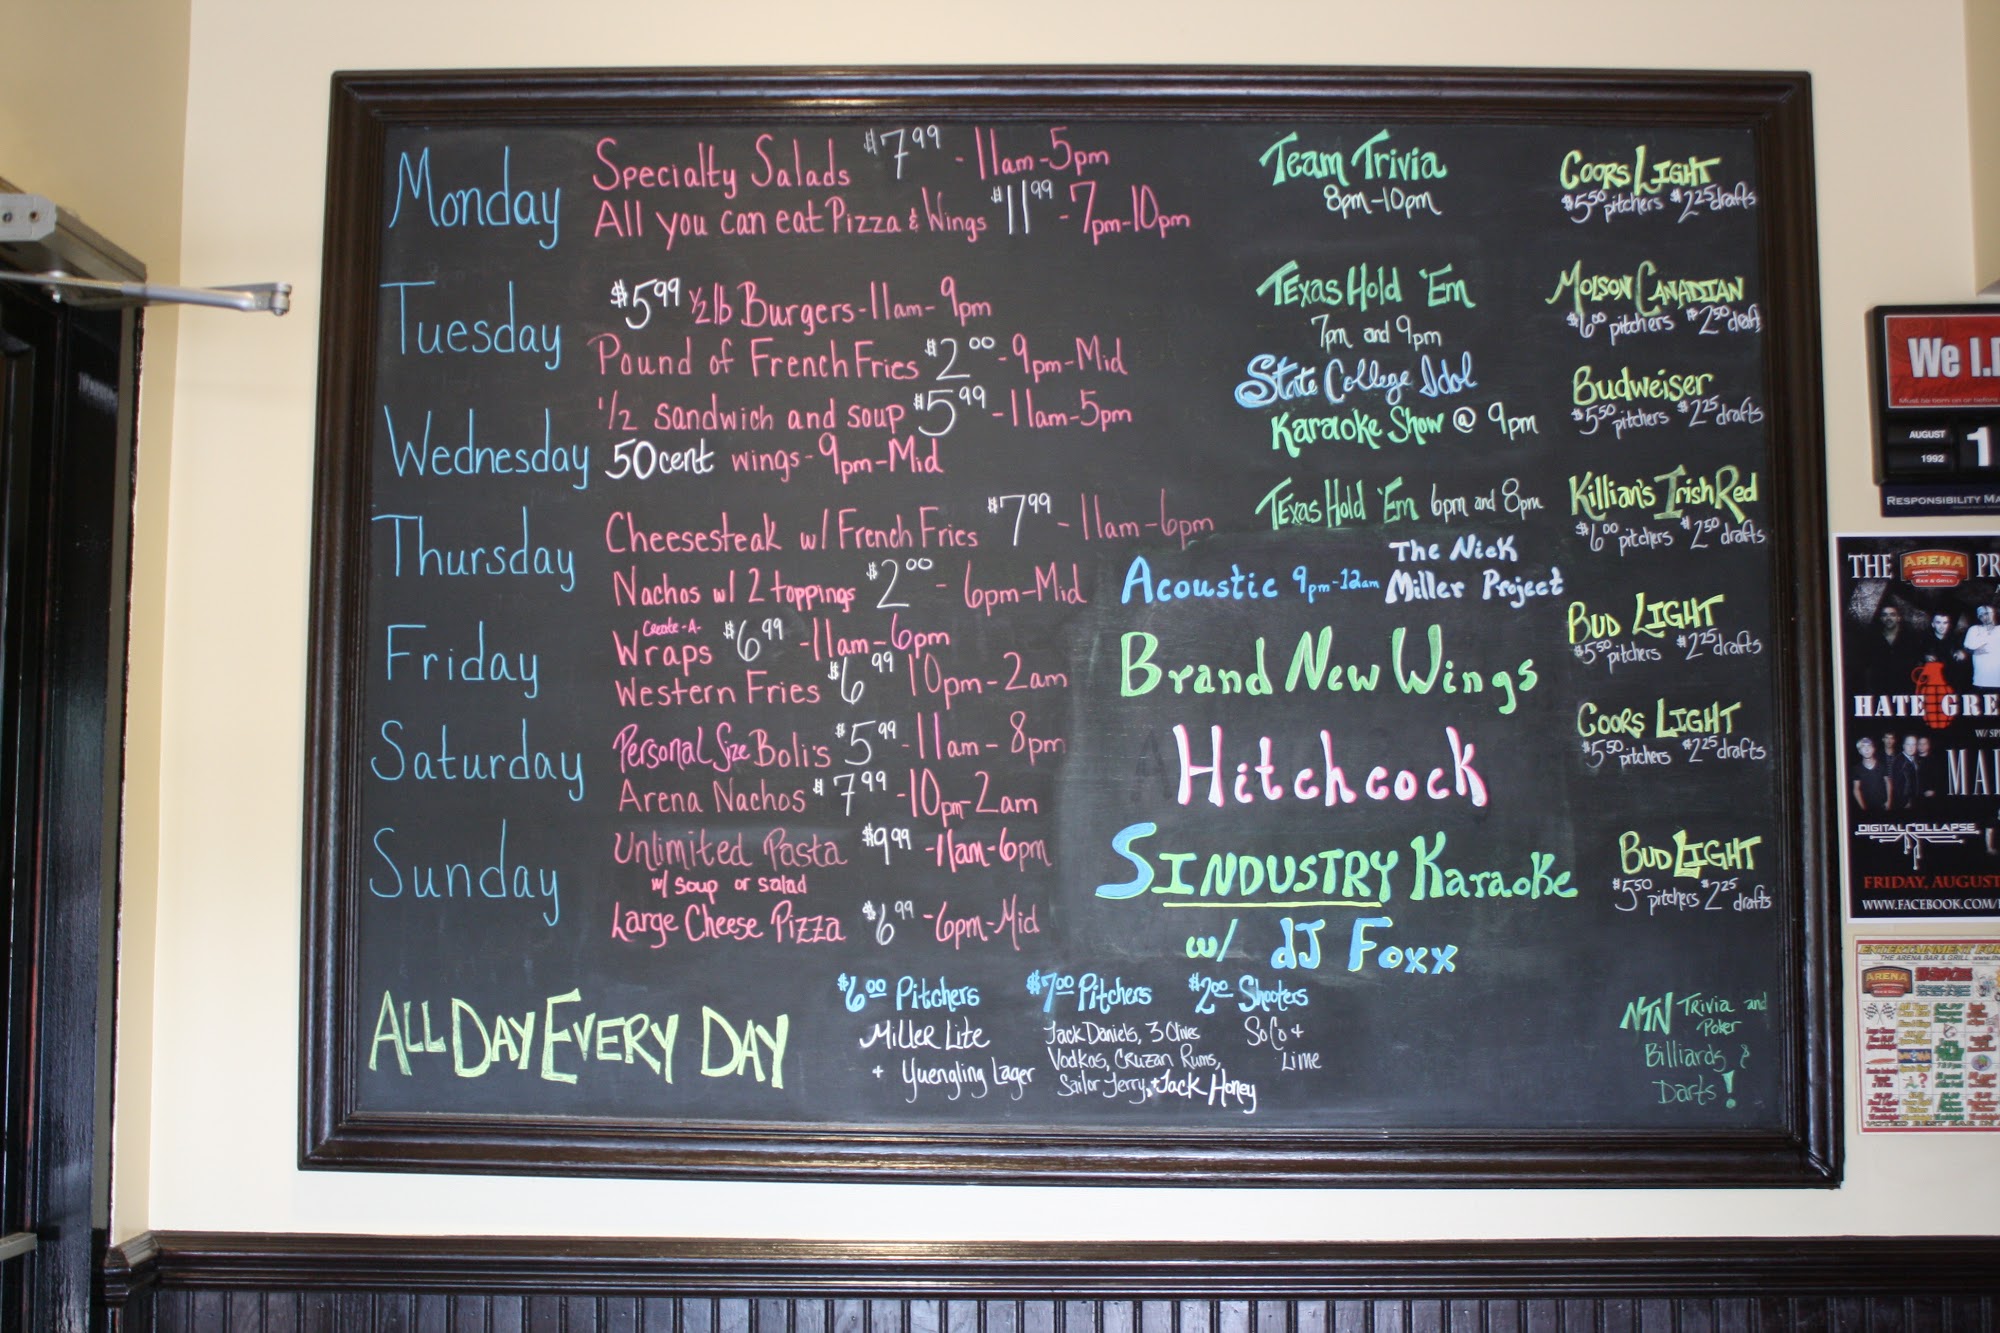 Monday
Specialty Salads $7.99 - 11am-5pm
All you can eat Pizza & Wings $11.99 - 7pm-10pm
Team Trivia
8pm-10pm
Coors Light
$5.50 pitchers $2.25 drafts
Tuesday
$5.99 1/2 lb Burgers - 11am - 9pm
Pound of French Fries $2.00 - 9pm-Mid
Texas Hold 'Em
7pm and 9pm
Molson Canadian
$6.00 pitchers $2.50 draft
Wednesday
1/2 sandwich and soup $5.99 - 11am-5pm
50cent wings - 9pm-Mid
State College Idol
Karaoke Show @ 9pm
Budweiser
$5.50 pitchers $2.25 drafts
Thursday
Cheesesteak w/ French Fries $7.99 - 11am-6pm
Nachos w/ 2 toppings $2.00 - 6pm-Mid
Texas Hold 'Em 6pm and 8pm
Acoustic 9pm-12am The Nick
Miller Project
Killian's Irish Red
$6.00 pitchers $2.50 drafts
Friday
Create-A-
Wraps $6.99 - 11am-6pm
Western Fries $6.99 10pm-2am
Brand New Wings
Bud Light
$5.50 pitchers $2.25 drafts
Saturday
Personal Size Boli's $5.99 - 11am - 8pm
Arena Nachos $7.99 - 10pm-2am
Hitchcock
Coors Light
$5.50 pitchers $2.25 drafts
Sunday
Unlimited Pasta $9.99 - 11am-6pm
w/ soup or salad
Large Cheese Pizza $6.99 - 6pm-Mid
Sindustry Karaoke
w/ dJ Foxx
Bud Light
$5.50 pitchers $2.25 drafts
All Day Every Day
$6.00 Pitchers
Miller Lite
+ Yuengling Lager
$7.00 Pitchers
Jack Daniels, 3 Olives
Vodkas, Cruzan Rums,
Sailor Jerry, + Jack Honey
$2.00 Shooters
SoCo +
Lime
NTN Trivia and
Poker
Billiards &
Darts!
We I.D
AUGUST
1992
1
RESPONSIBILITY MA
THE ARENA PR
BAR & GRILL
HATE GRE
MA
DIGITAL COLLAPSE
FRIDAY, AUGUS
WWW.FACEBOOK.COM/
ENTERTAINMENT FO
THE ARENA BAR & GRILL
ARENA
VOTED BEST BAR IN